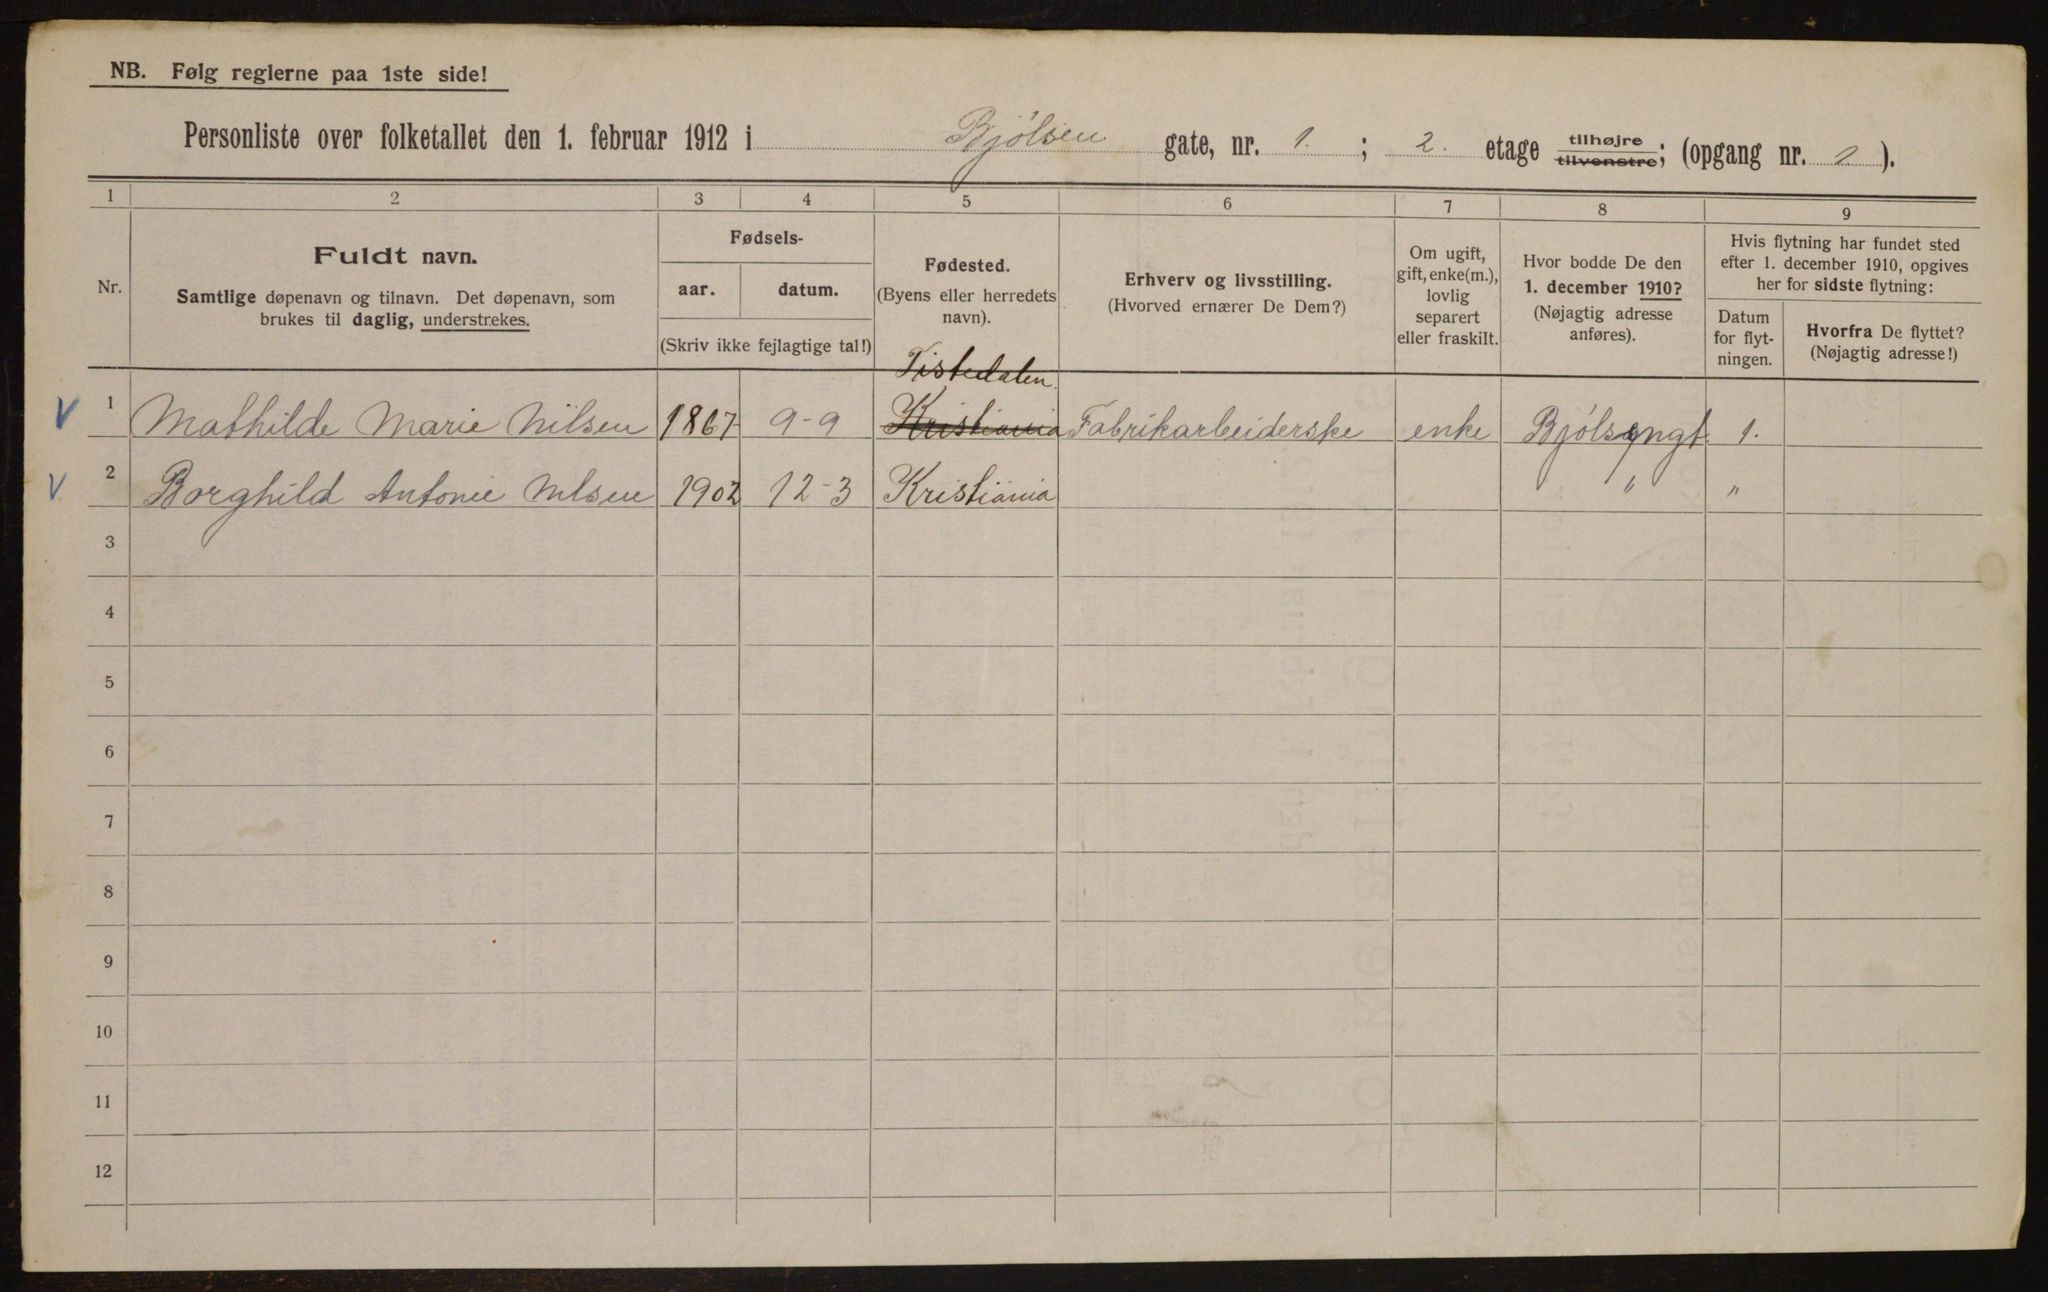 NB. Følg reglerne paa 1ste side!
Personliste over folketallet den 1. februar 1912 i Bjølsen gate, nr. 1. ; 2. etage tilhøjre tilvenstre; (opgang nr. 1 ).
1 2 3 4 5 6 7 8 9
Nr.
Fuldt navn.
Samtlige døpenavn og tilnavn. Det døpenavn, som
brukes til daglig, understrekes.
Fødsels-
aar. datum.
(Skriv ikke fejlagtige tal!)
Fødested.
(Byens eller herredets
navn).
Erhverv og livsstilling.
(Hvorved ernærer De Dem?)
Om ugift,
gift, enke(m.),
lovlig
separert
eller fraskilt.
Hvor bodde De den
1. december 1910?
(Nøjagtig adresse
anføres).
Hvis flytning har fundet sted
efter 1. december 1910, opgives
her for sidste flytning:
Datum
for flyt-
ningen.
Hvorfra De flyttet?
(Nøjagtig adresse!)
Tistedalen
V 1 Mathilde Marie Nilsen 1867 9-9 Kristiania Fabrikarbeiderske enke Bjølsengt. 1.
V 2 Borghild Antonie Nilsen 1902 12-3 Kristiania " "
3
4
5
6
7
8
9
10
11
12